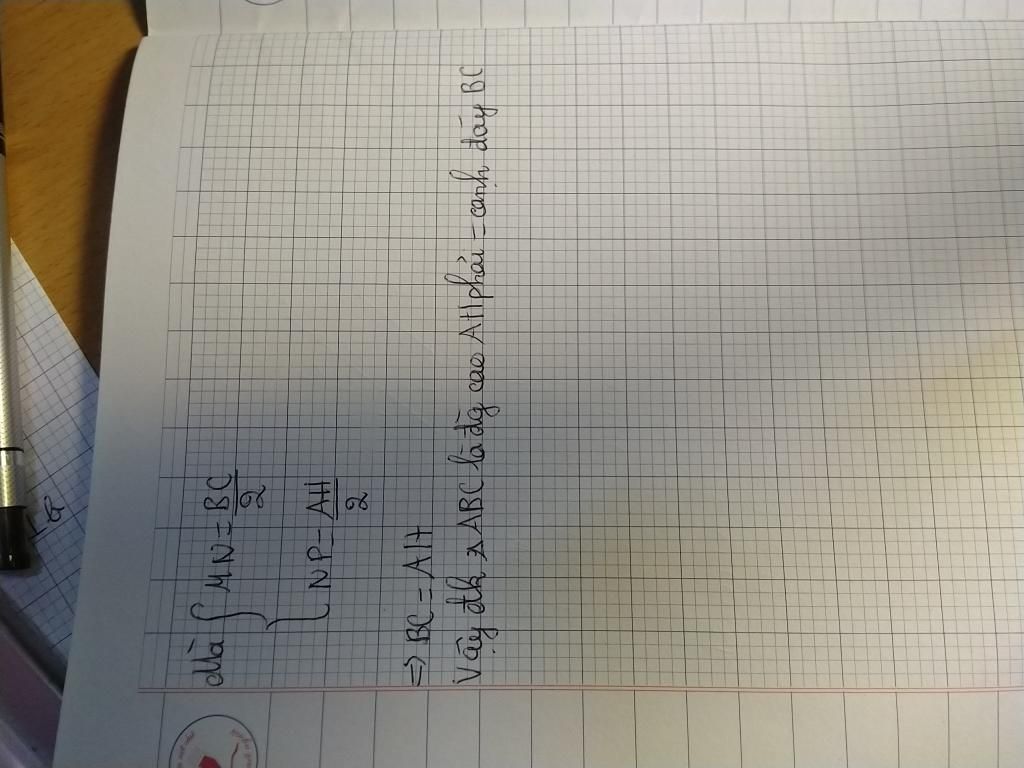 Mà { MN = BC/2
{ NP = AH/2
=> BC = AH
Vậy đk △ABC là đg cao AH phải = cạnh đáy BC